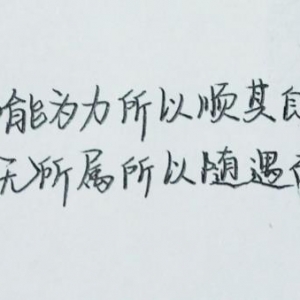 能为力所以顺其
无所属所以随遇